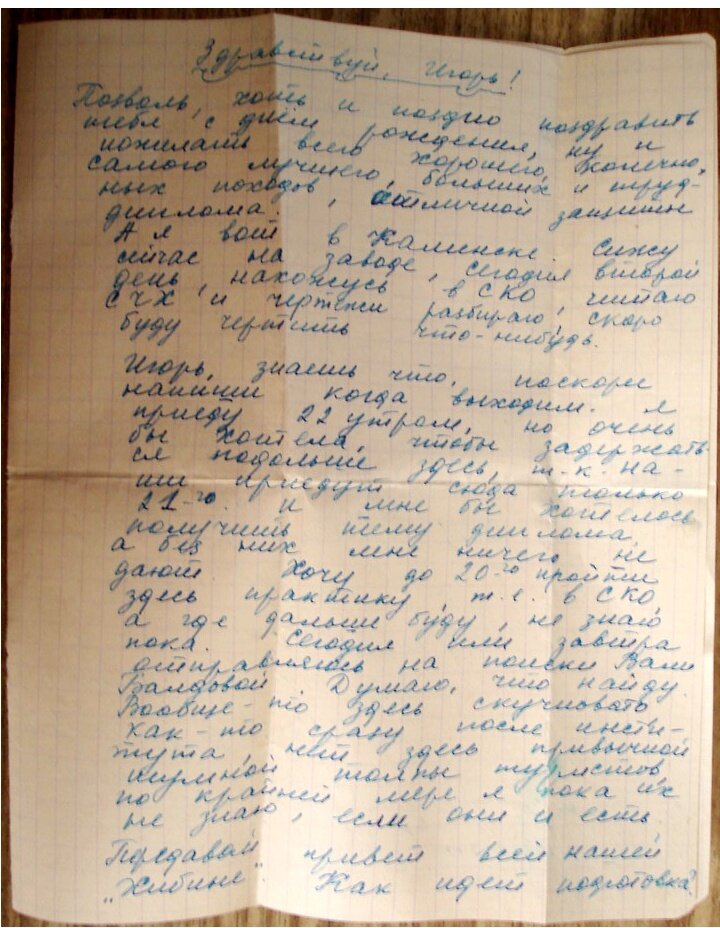 Здравствуй, Игорь!
Позволь, хоть и поздно поздравить
тебя с днём рождения, ну и
пожелать всего хорошего, конечно,
самого лучшего, больших и труд-
ных походов, отличной защиты
диплома.
А я вот в Каменске. Сижу
сейчас на заводе, сегодня второй
день, нахожусь в СКО, читаю
СЧХ и чертежи разбираю, скоро
буду чертить что-нибудь.
Игорь, знаешь что, поскорее
напиши когда выходим. Я
приеду 22 утром, но очень
бы хотела, чтобы задержать
ся подольше здесь, т-к на-
ши приедут сюда только
21-го. и мне бы хотелось
получить тему диплома,
а без них мне ничего не
дают. Хочу до 20-го пройти
здесь практику т.е. в СКО,
а где дальше буду, не знаю
пока. Сегодня или завтра
отправляюсь на поиски Вали
Балдовой. Думаю, что найду.
Вообще-то здесь скучновато
как-то сразу после инсти-
тута нет здесь привычной
шумной толпы туристов
по крайней мере я пока их
не знаю, если они и есть.
Передавай привет всей нашей
"Хибине". Как идет подготовка?